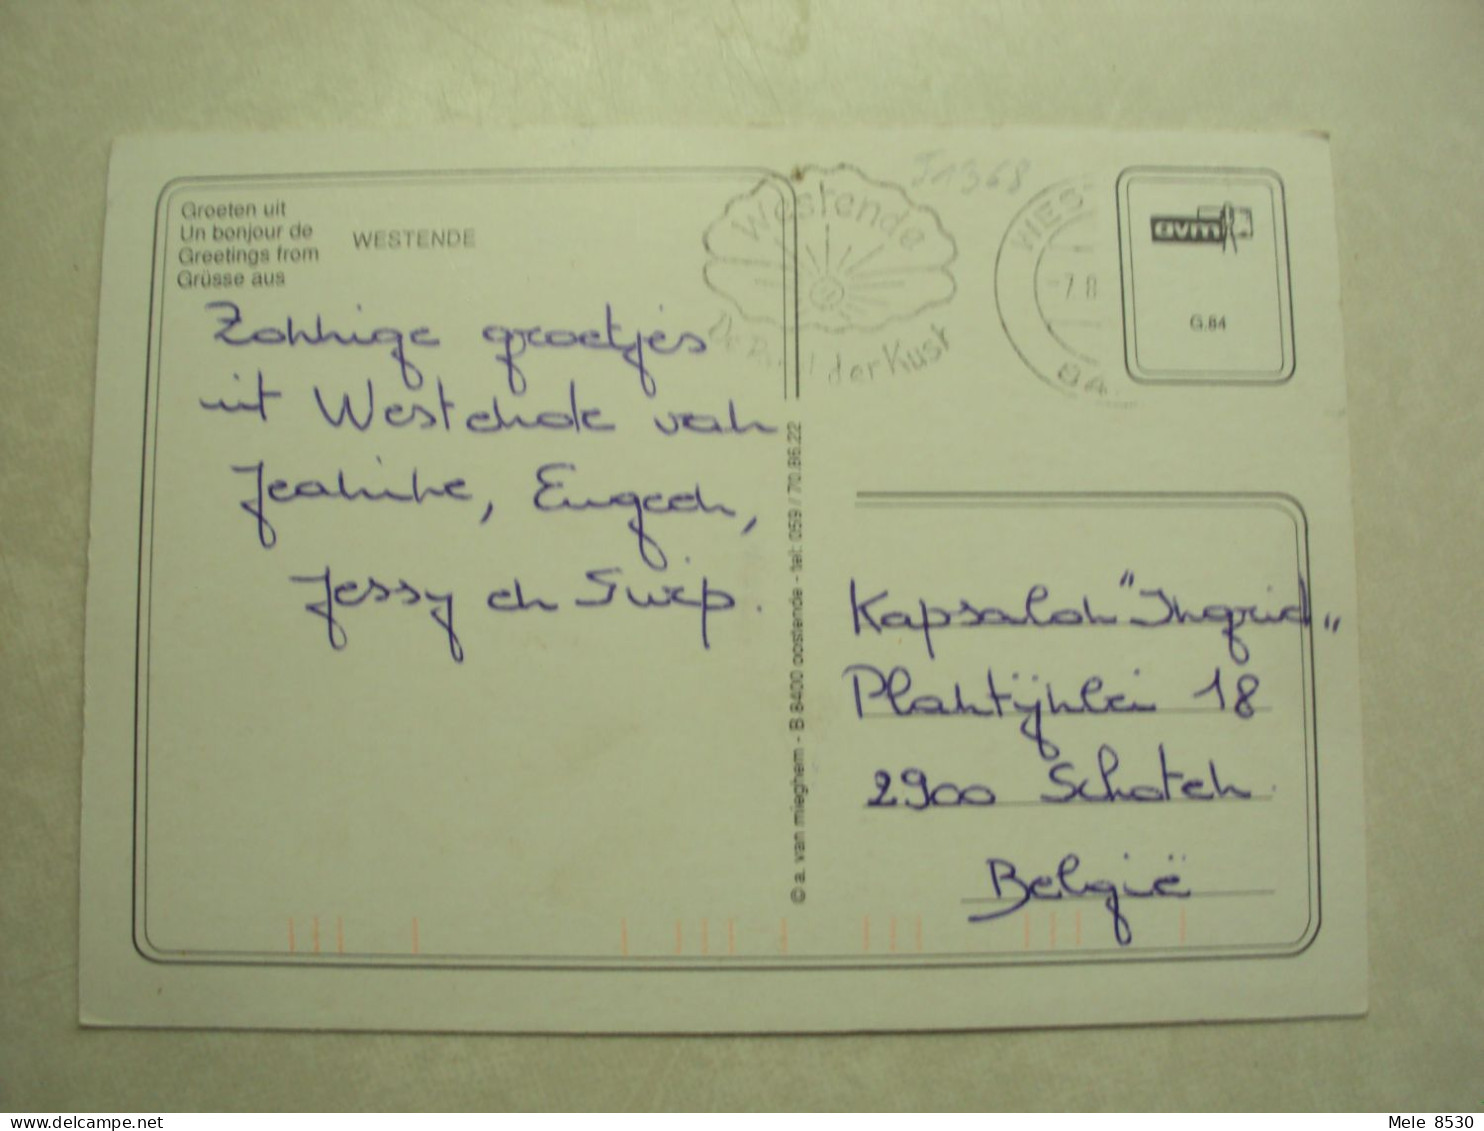 Groeten uit
Un bonjour de
Greetings from
Grüsse aus
WESTENDE
Zonnige groetjes
uit Westende van
Jeanine, Eugeen,
Jessy en
© a. van mieghem - B 8400 oostende - tel: 059 / 70.86.22
51368
Westende
der Kust
WEST
7 8
84
avm
G.84
Kapsalon "Ingrid"
Plantijnlei 18
2900 Schoten
België
Mele 8530